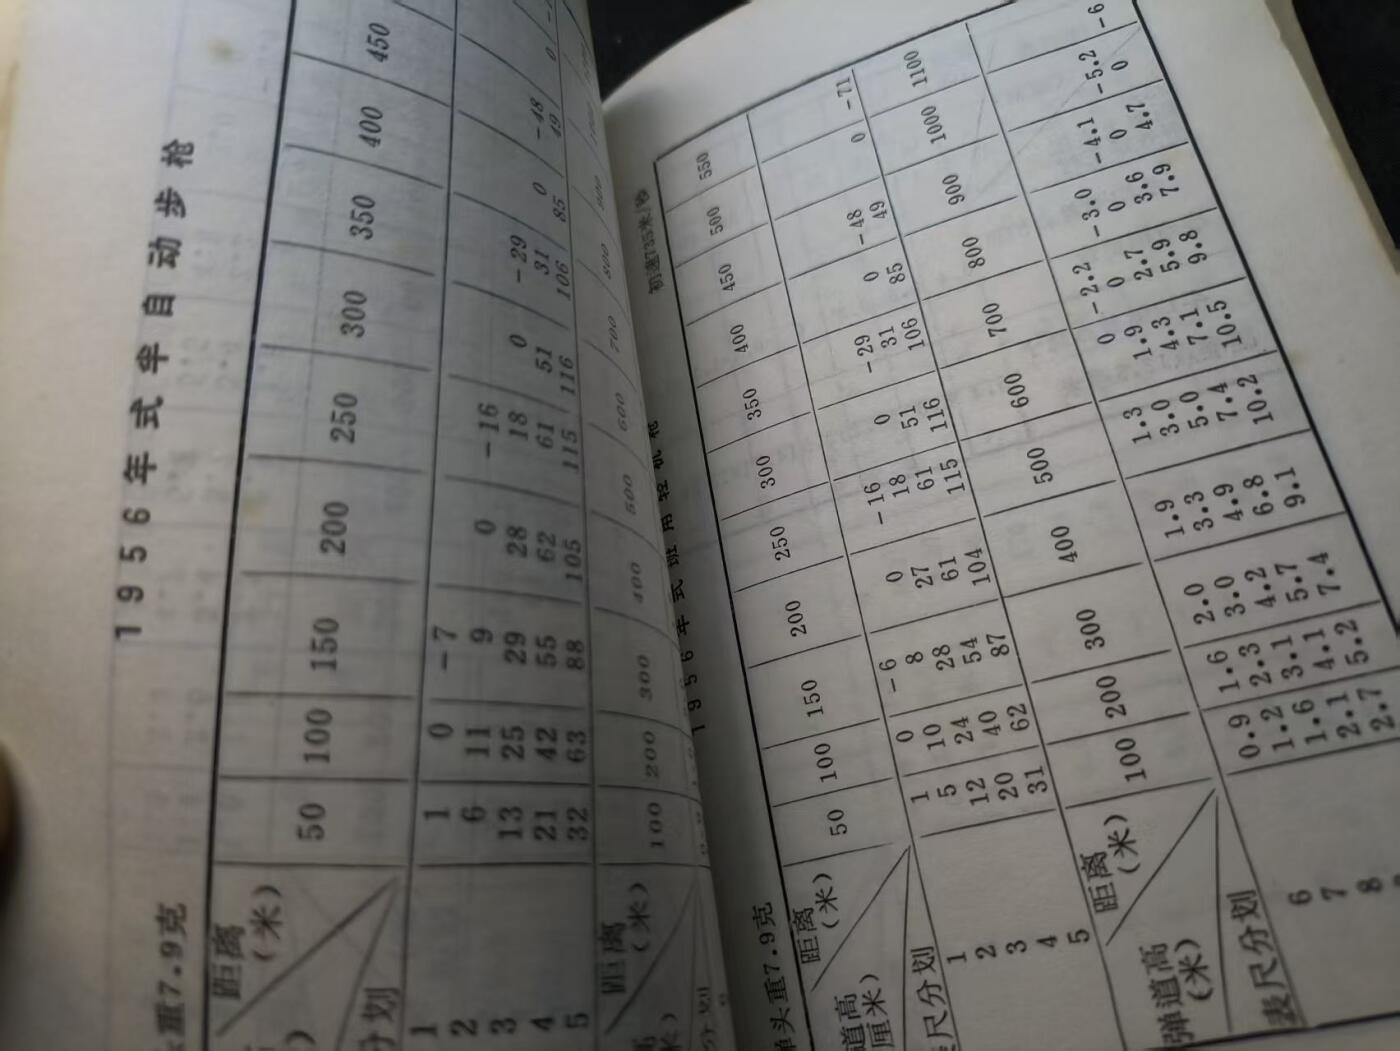 1956年式半自动步枪
重7.9克
距离 50 100 150 200 250 300 350 400 450
(米)
分划
1 1 0 -7
2 6 11 9 0 -16
3 13 25 29 28 18 0 -29
4 21 42 55 62 61 51 31 0 -48
5 32 63 88 105 115 116 106 85 49 0
距离 100 200 300 400 500 600 700 800 900
(米)
分划
1956年式班用轻机枪
弹头重7.9克 初速735米/秒
距离 50 100 150 200 250 300 350 400 450 500 550
(米)
道高
厘米)
表尺分划
1 1 0 -6
2 5 10 8 0 -16
3 12 24 28 27 18 0 -29
4 20 40 54 61 61 51 31 0 -48
5 31 62 87 104 115 116 106 85 49 0 -71
距离 100 200 300 400 500 600 700 800 900 1000 1100
(米)
弹道高
(米)
表尺分划
6 0.9 1.6 2.0 1.9 1.3 0 -2.2
7 1.2 2.3 3.0 3.3 3.0 1.9 0 -3.0
8 1.6 3.1 4.2 4.9 5.0 4.3 2.7 0 -4.1
2.1 4.1 5.7 6.8 7.4 7.1 5.9 3.6 0 -5.2
2.7 5.2 7.4 9.1 10.2 10.5 9.8 7.9 4.7 0 -6